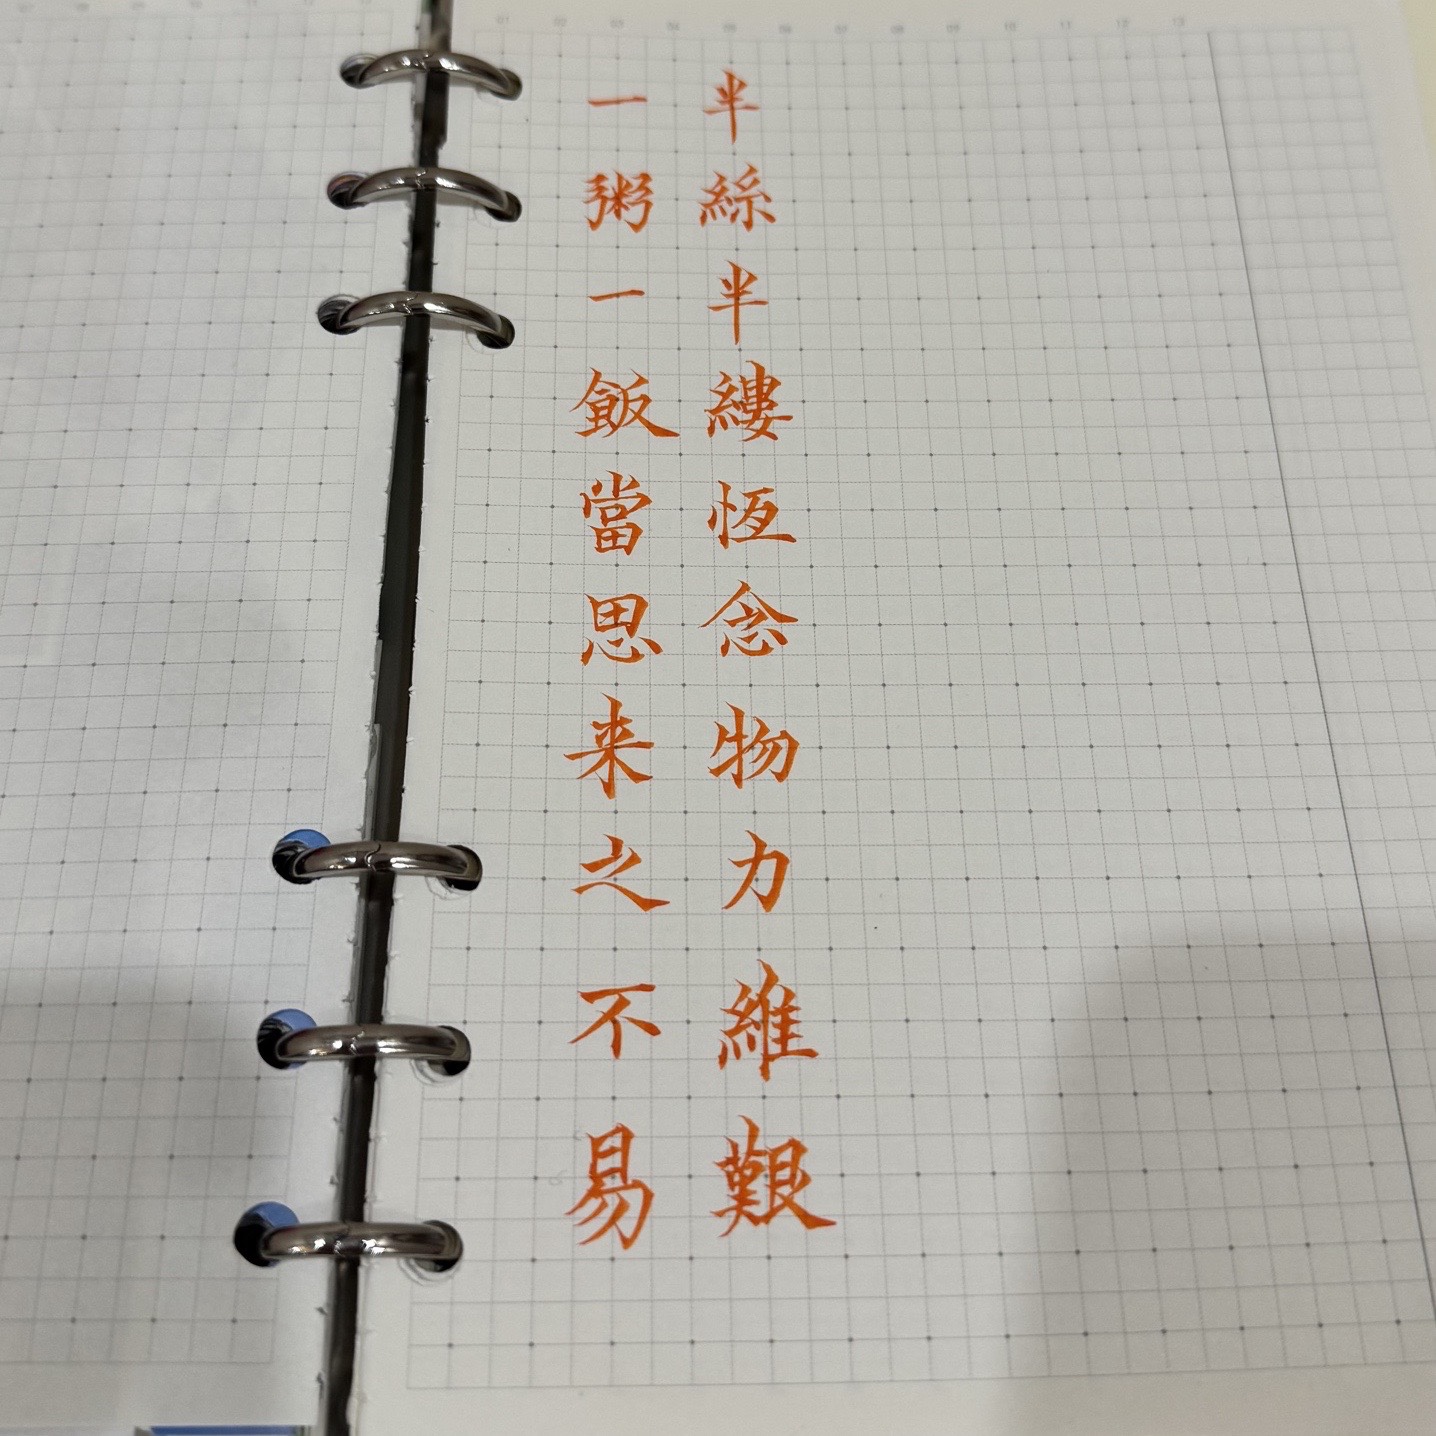 一粥一飯當思来之不易
半絲半縷恆念物力維艱